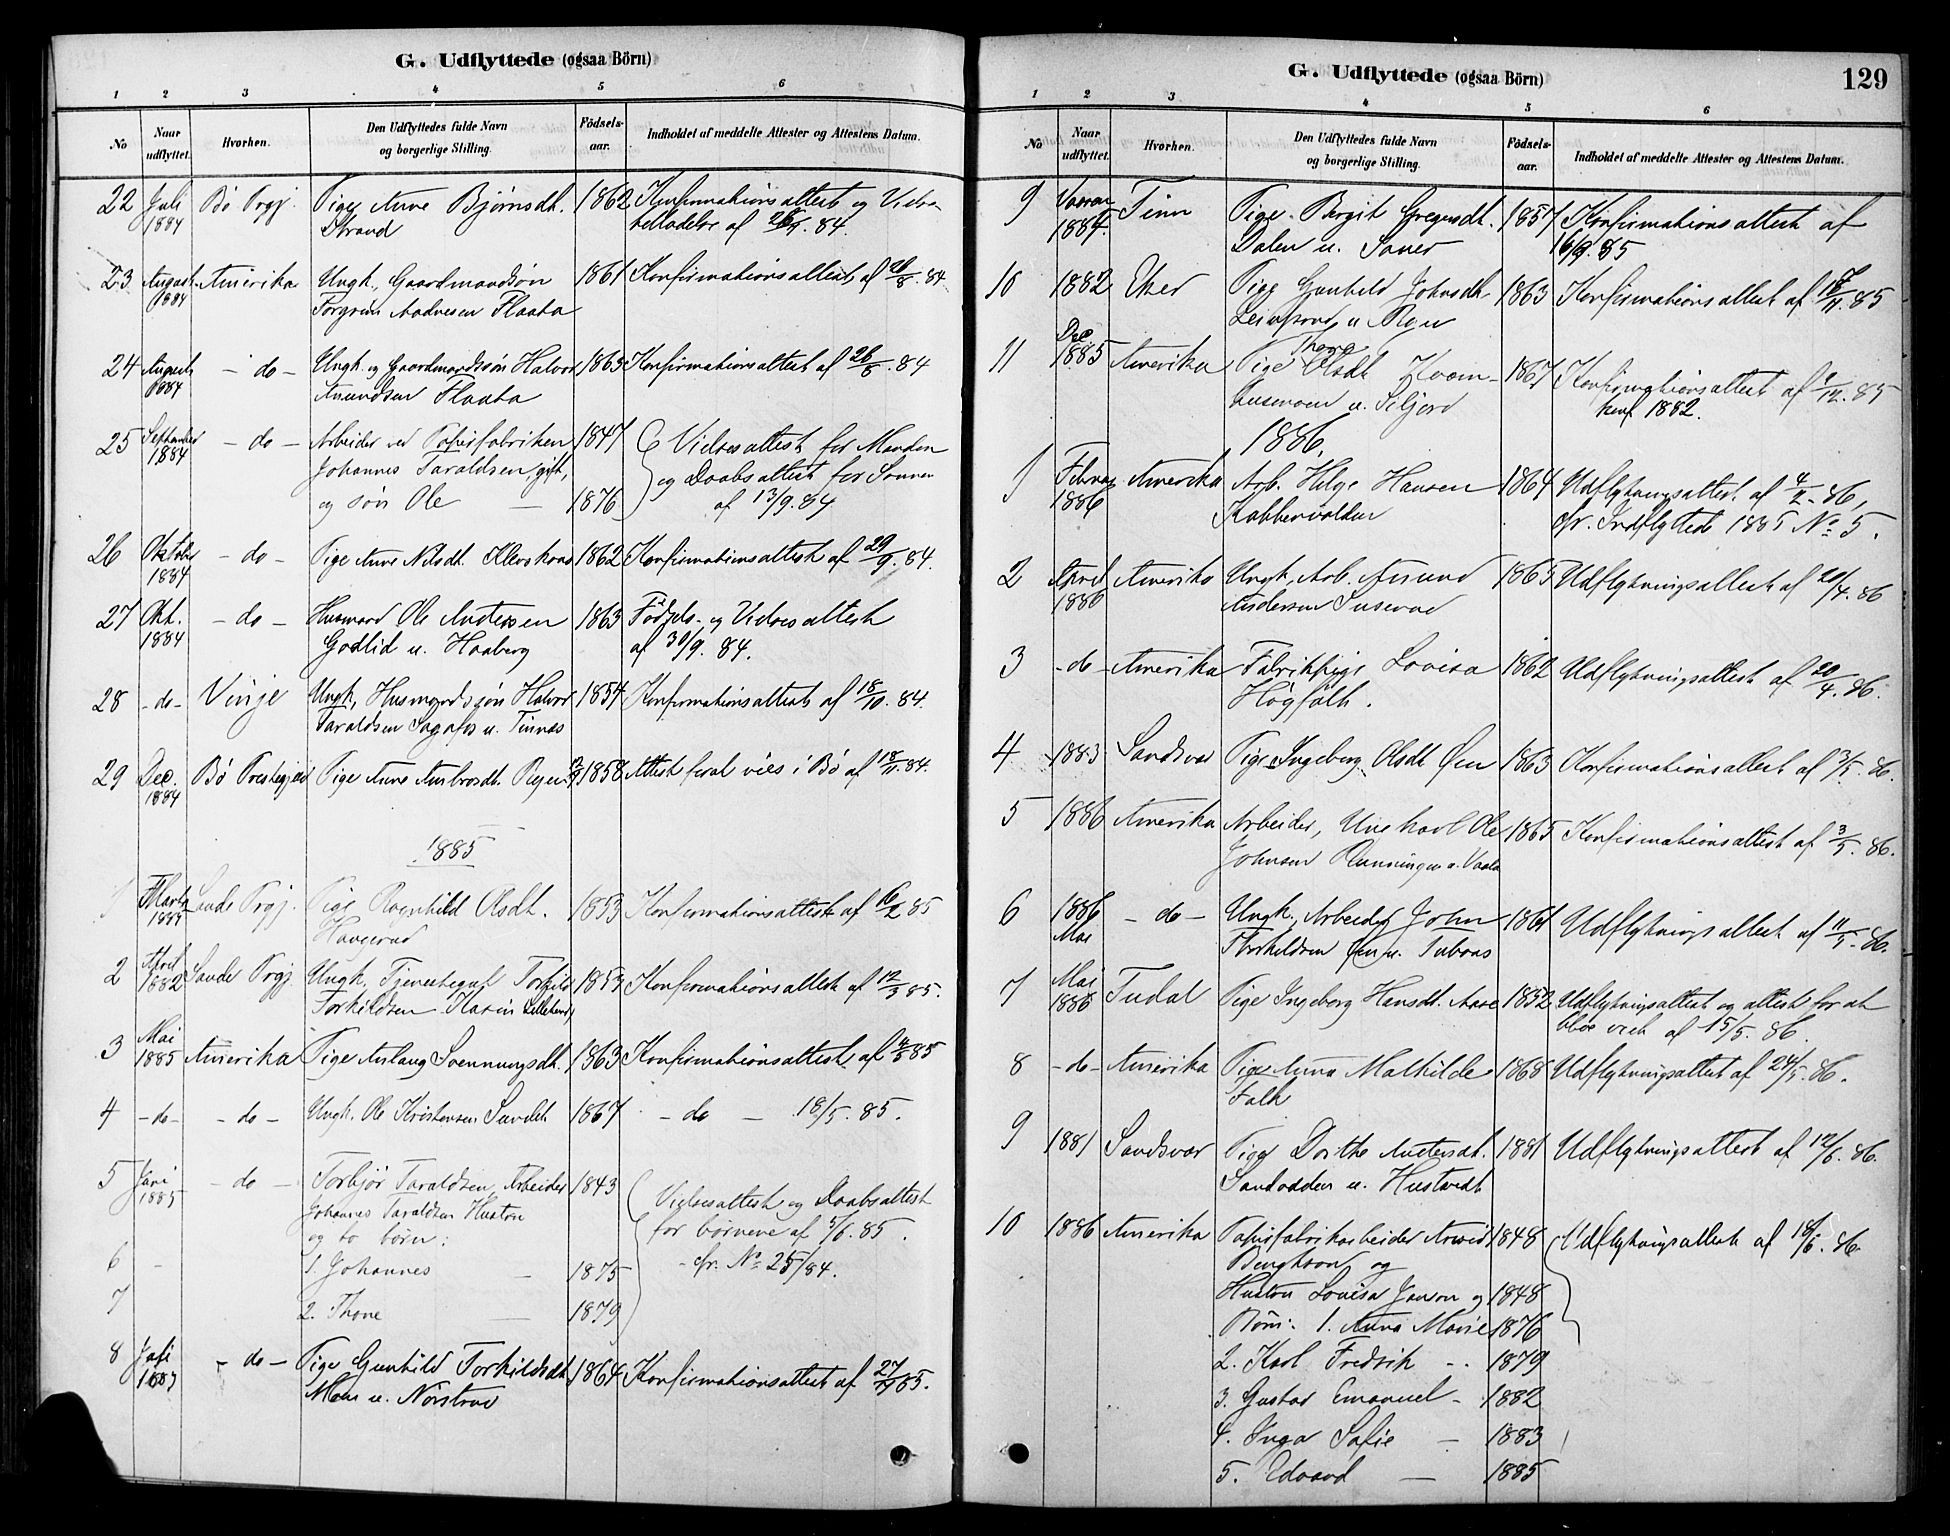 G. Udflyttede (ogsaa Börn)
1 2 3 4 5 6
No
Naar udflyttet.
Hvorhen.
Den Udflyttedes fulde Navn og borgerlige Stilling.
Födsels-aar.
Indholdet af meddelte Attester og Attestens Datum.
22 Juli 1884 Bö Prgj. Pige Anne Bjørnsdt. 1862 Konfirmationsattest og
Strand af 84.
23 August 1884 Amerika Ungk. Gaardmandssøn 1861 Konfirmationsattest af 26/8. 84
Torgrim Aadnesen Flaata
24 August 1884 - do - Ungk. og Gaardmandssøn Halvor 1863 Konfirmationsattest af 26/8. 84
Amundsen Flaata
25 September 1884 - do - Arbeider ved Papirfabriken 1847 Vielsesattest for Manden
Johannes Taraldsen, gift, og Daabsattest for Sønnen
og søn Ole — 1876 af 13/9. 84
26 Oktober 1884 - do - Pige Anne Nilsdt. 1862 Konfirmationsattest af 29/9. 84.
27 Okt. 1884 - do - Husmand Ole Andersen 1863 Fødsels- og Vielsesattest
Godlid u. Haaberg af 30/9. 84.
28 - do - Vinje Ungk., Husmandssøn Halvor 1854 Konfirmationsattest af 18/10. 84.
Taraldsen Sagafos u. Tinnes
29 Dec. 1884 Bö Prestegjeld Pige Anne Ambrosdt. 1858 Attest for at vies i Bö af 18/11. 84.
1885
1 Marts Sande Prgj. Pige Ragnhild Olsdt. 1853 Konfirmationsattest af 16/2 85
Haugerud
2 April 1882 Sande Prgj. Ungk. Tjenestegut Torkild 1853 Konfirmationsattest af 12/3 85.
Torkildsen
3 Mai 1885 Amerika Pige Aslaug Svenningsdt. 1863 Konfirmationsattest af 85
4 - do - - do - Ungk. Ole Kristensen 1867 - do - 18/5. 85.
5 Juni 1885 - do - Torbjør Taraldsen, Arbeider 1843 Vielsesattest og Daabsattest
Johannes Taraldsen Hustru for børnene af 5/6. 85.
og to børn: cfr. No 25/84.
6 - 1. Johannes — 1875
7 2. Thone — 1879
8 - do - Pige Gunhild Torkildsdt. 1864 Konfirmationsattest af 85.
Moen u.
G. Udflyttede (ogsaa Börn)
129
1 2 3 4 5 6
No
Naar udflyttet.
Hvorhen.
Den Udflyttedes fulde Navn og borgerlige Stilling.
Födsels-aar.
Indholdet af meddelte Attester og Attestens Datum.
9 Vaaren 1884. Tinn Pige Bergit Gregersdt. 1857 Konfirmationsattest af
Dalen u. 16/9. 85
10 1882 Eker Pige Gunhild Johnsdt. 1863 Konfirmationsattest af 85
11 Dec 1885 Amerika Pige Thone Olsdt 1867 Konfirmationsattest af 85
u. Seljord konf. 1882.
1886.
1 Februar 1886 Amerika Arb. Helge Hansen 1864 Udflytningsattest af 4/2. 86,
Kobbervolden cfr. Indflyttede 1885 No 5.
2 April 1886 Amerika Ungk. Arb. Amund 1865 Udflytningsattest af 20/4. 86
Anderson
3 - do - Amerika Fabrikpige Lovisa 1862 Udflytningsattest af 20/4. 86.
4 1883 Sandsvær Pige Ingeborg Olsdt Øen 1863 Konfirmationsattest af 3/5. 86.
5 1886 Amerika Arbeider, Ungkarl Ole 1865 Konfirmationsattest af 3/5. 86.
Johnsen
6 1886 Mai - do - Ungk. Arbeider John 1861 Udflytningsattest af 11/5. 86.
Thorkildsen
7 Mai 1886 Tudal Pige Ingeborg Hansdt. Aase 1852 Udflytningsattest og attest for at
blive viet af 15/5. 86.
8 - do - Amerika Pige Anna Mathilde 1868 Udflytningsattest af 24/5. 86.
Falk
9 1881 Sandsvær Pige Dorthe Andersdt. 1881 Udflytningsattest af 12/6. 86.
Sandodden u. Hustvedt
10 1886 Amerika Papirfabrikarbeider Arvid 1848 Udflytningsattest af 18/6. 86.
Bengtson og
Hustru Lovisa Janson og 1848
Børn: 1. Anna Marie 1876
2. Karl Fredrik - - 1879
3. Gustav Emanuel - 1882
4. Inga Sofie — 1883
5. Edvard — 1885